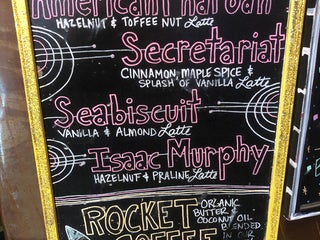 American Pharoah
HAZELNUT & TOFFEE NUT Latte
Secretariat
CINNAMON, MAPLE SPICE &
SPLASH OF VANILLA Latte
Seabiscuit
VANILLA & ALMOND Latte
Isaac Murphy
HAZELNUT & PRALINE Latte
ROCKET
COFFEE
ORGANIC
BUTTER &
COCONUT OIL
BLENDED
IN OUR